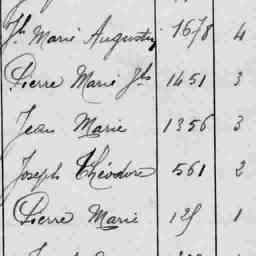 Jh Marie Augustin 1678 4
Pierre Marie Jh 1451 3
Jean Marie 1356 3
Joseph Théodore 561 2
Pierre Marie 125 1